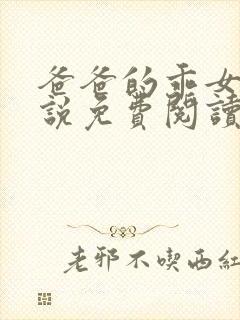 爸爸的乖女
說免費閱讀
老邪不喫西紅